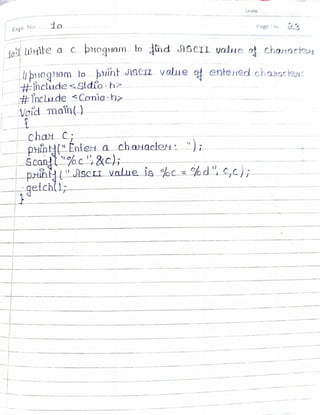 Expt. No. 10
Page No. 23
10) Write a C program to find ASCII value of character
// program to print ASCII value of entered character:
#include<stdio.h>
#include <Conio.h>
Void main()
{
char C;
printf("Enter a character: ");
Scanf("%c",&c);
printf("ASCII value is %c = %d", c,c);
getch();
}